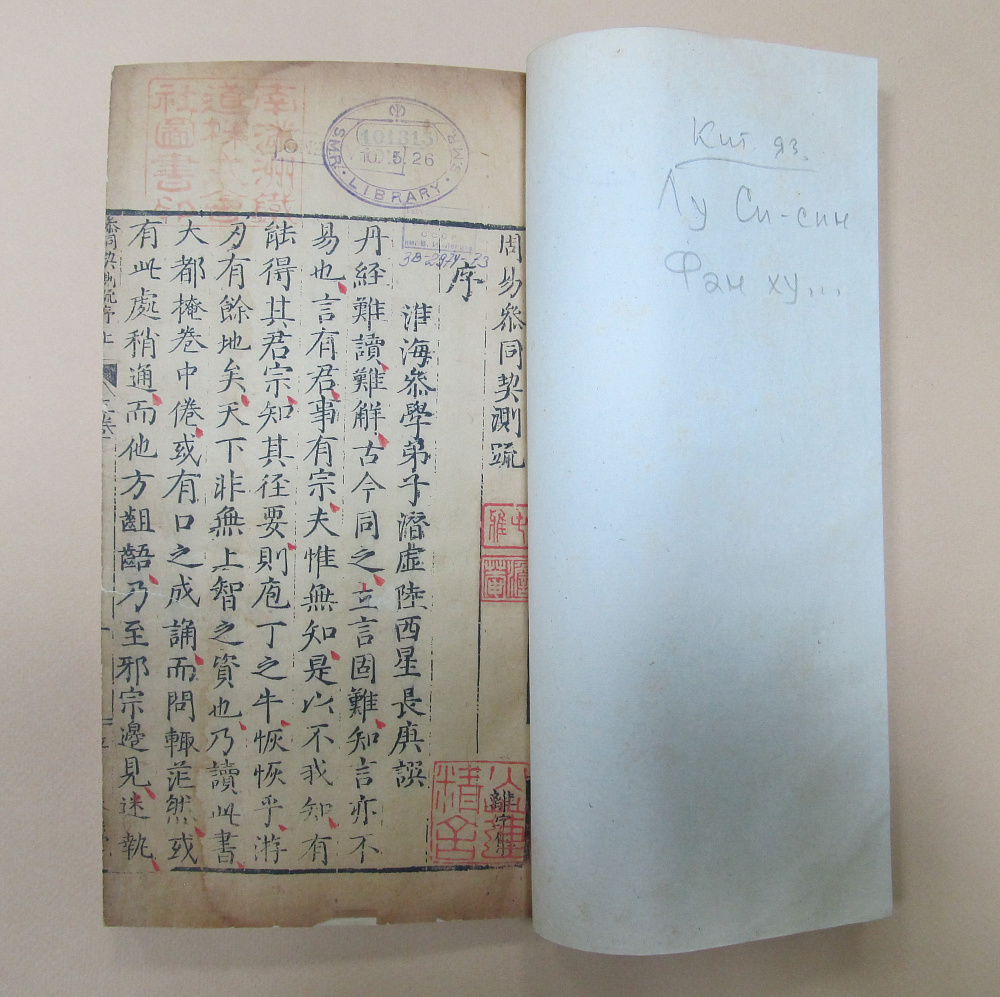 Кит. яз.
Лу Си-син
Фан ху...
周易參同契測疏
序
淮海參學弟子潛虛陸西星長庚譔
丹經難讀難解古今同之立言固難知言亦不
易也言有君事有宗夫惟無知是以不我知有
能得其君宗知其徑要則庖丁之牛恢恢乎游
刃有餘地矣天下非無上智之資也乃讀此書
大都掩卷中倦或有口之成誦而問輙茫然或
有此處稍通而他方齟齬乃至邪宗邊見迷執
S.M.R. RWY'S.
LIBRARY
101313
10.5.26
С С С Р
им. В. И. Ленина
3В-2-974-73
南滿洲鐵
道株式會
社圖書印